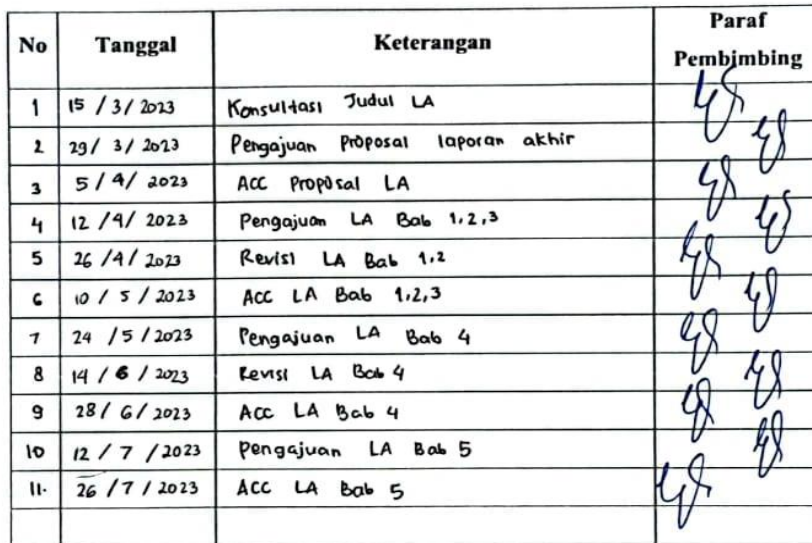 No Tanggal Keterangan Paraf Pembimbing
1 15 / 3 / 2023 Konsultasi Judul LA
2 29 / 3 / 2023 Pengajuan Proposal laporan akhir
3 5 / 4 / 2023 ACC Proposal LA
4 12 / 4 / 2023 Pengajuan LA Bab 1,2,3
5 26 / 4 / 2023 Revisi LA Bab 1,2
6 10 / 5 / 2023 ACC LA Bab 1,2,3
7 24 / 5 / 2023 Pengajuan LA Bab 4
8 14 / 6 / 2023 Revisi LA Bab 4
9 28 / 6 / 2023 ACC LA Bab 4
10 12 / 7 / 2023 Pengajuan LA Bab 5
11. 26 / 7 / 2023 ACC LA Bab 5